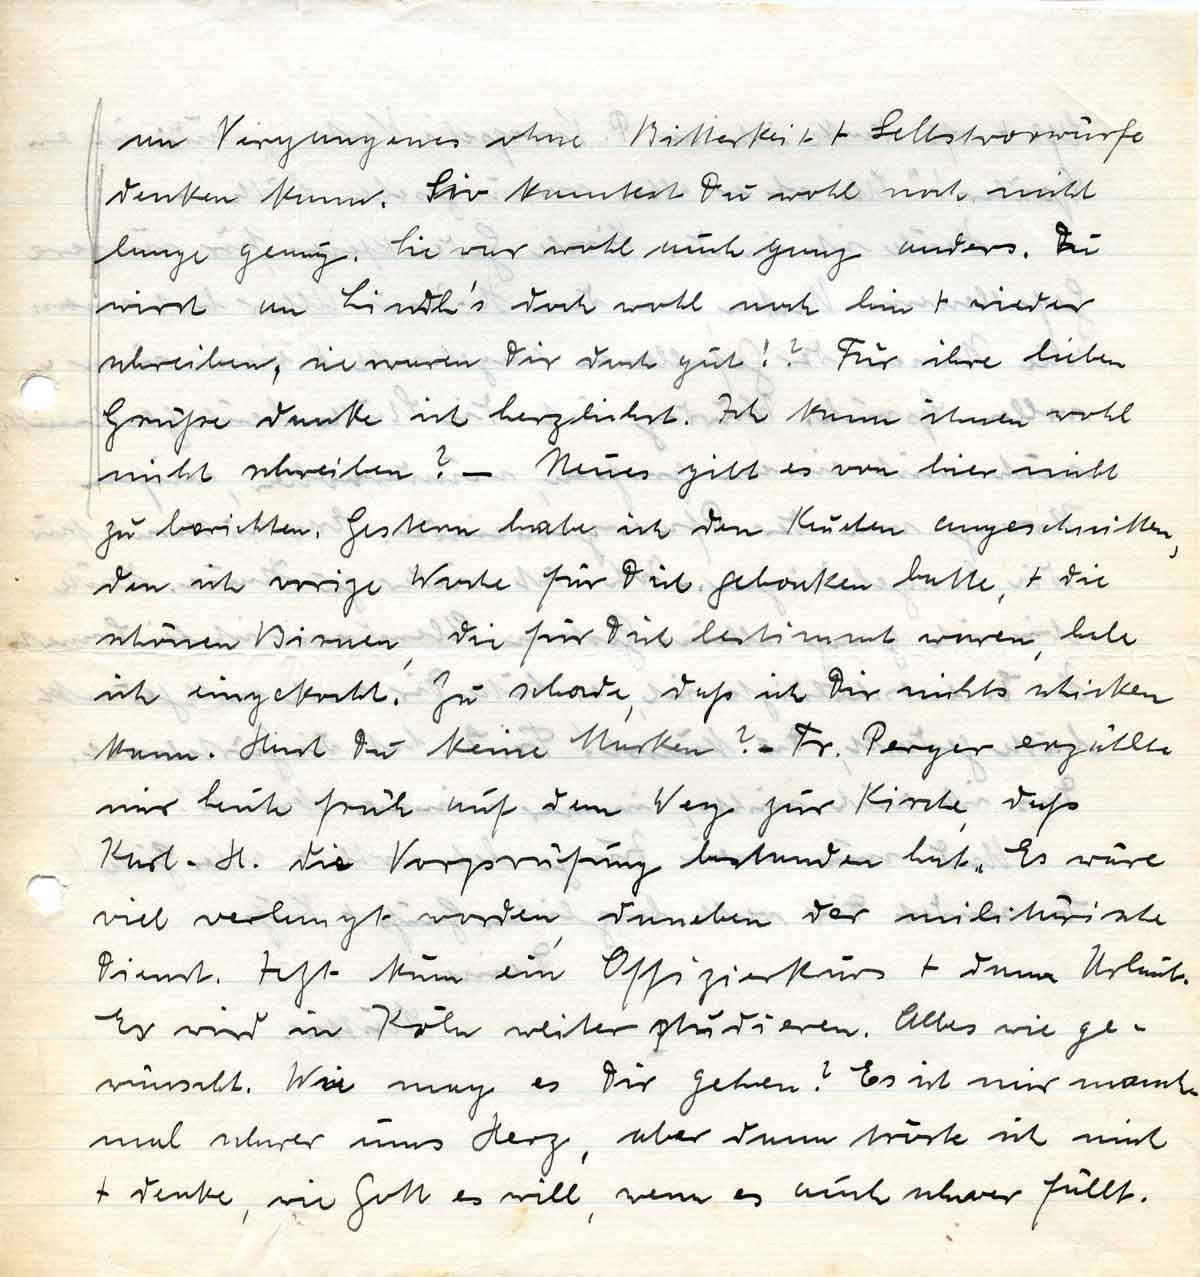 an Vergangenes ohne Bitterkeit + Selbstvorwürfe
denken kann. Sie kanntest Du wohl noch nicht
lange genug. Sie war wohl auch ganz anders. Du
wirst an Lindl's doch wohl noch hin + wieder
schreiben, sie waren Dir doch gut!? Für ihre lieben
Grüße danke ich herzlichst. Ich kann ihnen wohl
nicht schreiben? — Neues gibt es von hier nicht
zu berichten. Gestern habe ich den Kuchen angeschnitten,
den ich vorige Woche für Dich gebacken hatte, + die
schönen Birnen, die für Dich bestimmt waren, habe
ich eingekocht. Zu schade, daß ich Dir nichts schicken
kann. Hast Du keine Marken? – Fr. Perger erzählte
mir heute früh auf dem Weg zur Kirche, daß
Karl-H. die Vorprüfung bestanden hat. Es wäre
viel verlangt worden, daneben der militärische
Dienst. Jetzt käm ein Offizierkurs + dann Urlaub.
Er wird in Köln weiter studieren. Alles wie ge-
wünscht. Wie mag es Dir gehen? Es ist mir manch-
mal schwer ums Herz, aber dann tröste ich mich
+ denke, wie Gott es will, wenn es auch schwer fällt.